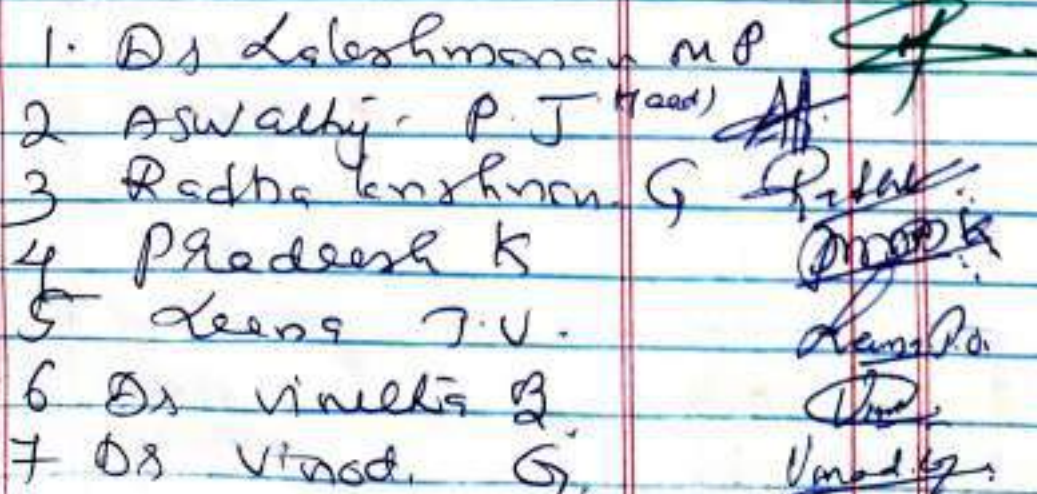 1. Dr Lakshmanan M P
2 Aswathy. P. J (Head)
3 Radha krishnan. G
4 Pradeesh K
5 Leena T.V.
6 Dr Vineetha B.
7 Dr Vinod. G. Vinod.G.